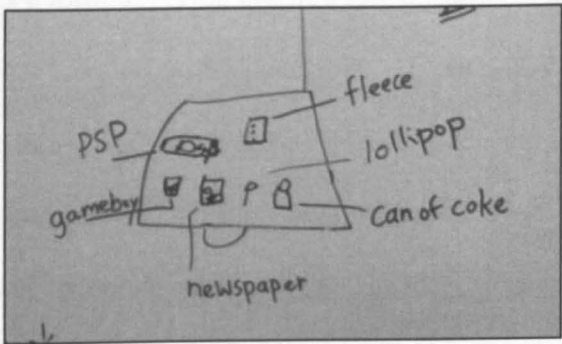 fleece
PSP
lollipop
gameboy
can of coke
newspaper